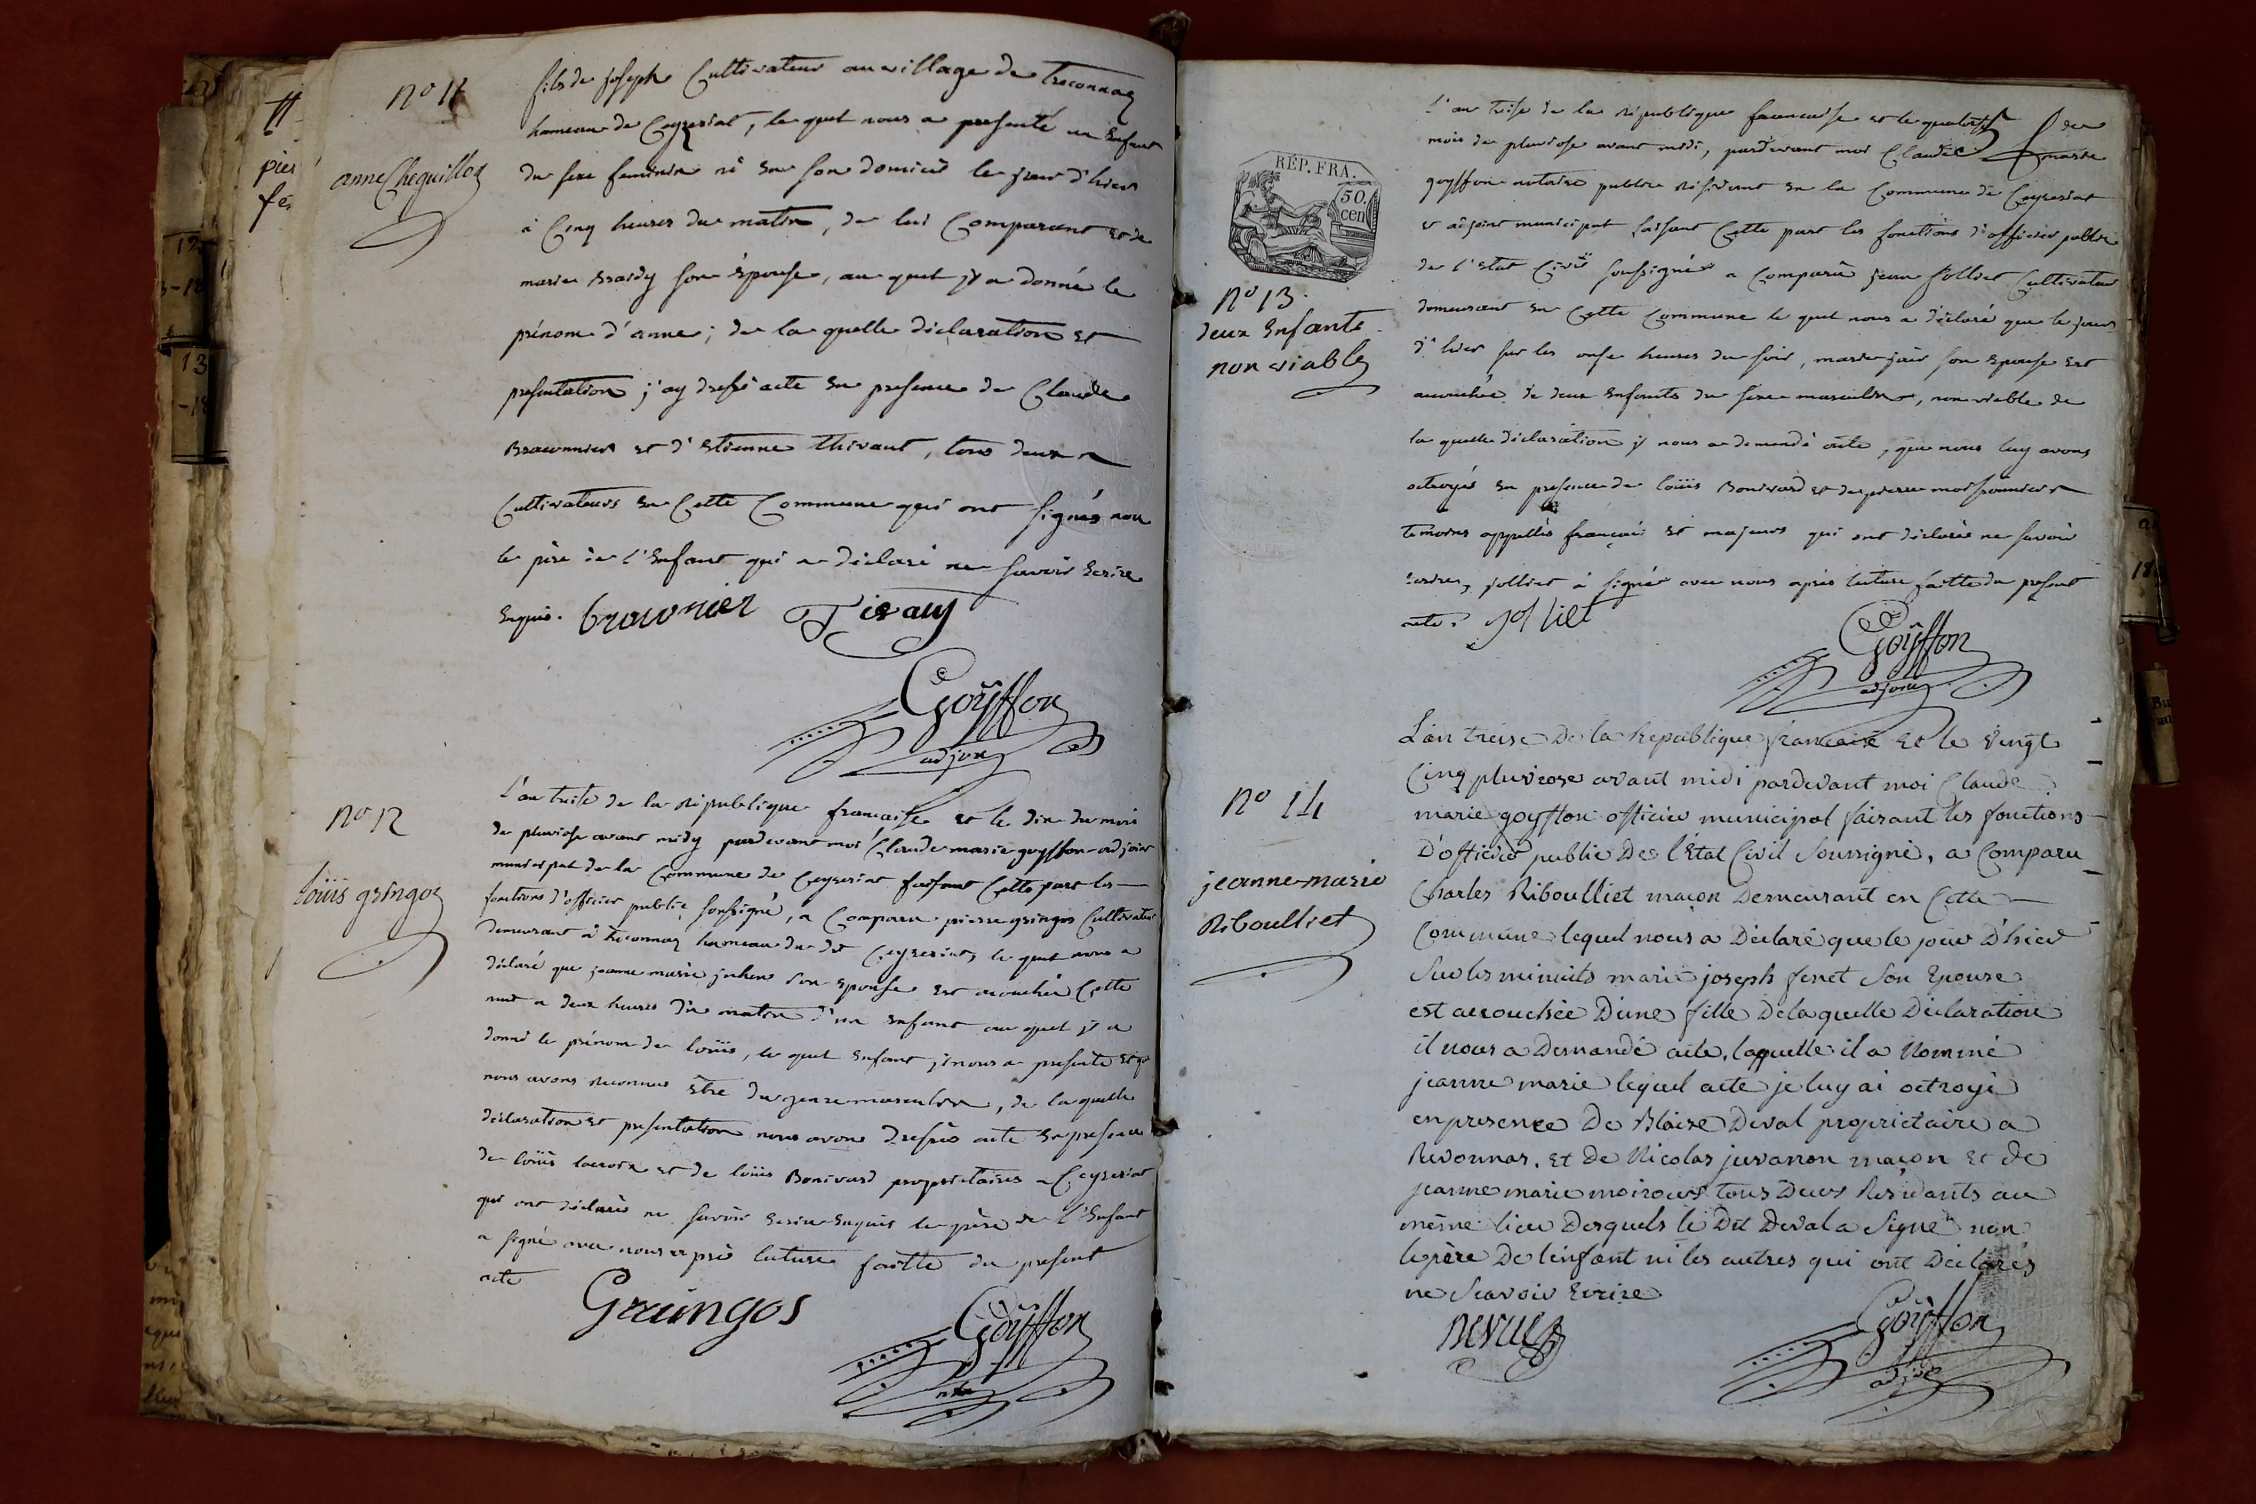 No 11
anne Chequilloz
fils de joseph Cultivateur au village de Treconnaz
hameau de Ceyzeriat, le quel nous a presenté un Enfant
du sexe feminin né En son domicil le jour d'hier
à Cinq heures du matin, de lui Comparant et de
marie Braidy son Epouse, au quel jl a donné le
prénom d'anne; de la quelle déclaration et
presentation j'ay dressé acte En presence de Claude
Braconnier et d'Etienne thivant, tous deux
Cultivateurs En Cette Commune qui ont signés non
le père de l'Enfant qui a déclaré ne savoir Ecrire
Enquis.
Goyffon
adjoin
No 12
loüis gringoz
l'an treise de la République francaise et le dix du mois
de pluviose avant midy pardevant moi Claude marie goyffon adjoint
municipal de la Commune de Ceyzeriat faisant Cette part les
fonctions d'officier public soussigné, a Comparu pierre gringos Cultivateur
demeurant à treconnaz hameau du dt Ceyzeriat, le quel nous a
déclaré que jeanne marie son Epouse Est acouchée Cette
nuit a deux heures du matin d'un Enfant au quel jl a
donné le prénom de loüis, le quel Enfant jl nous a presenté et que
nous avons Reconnus Etre du genre masculin, de la quelle
déclaration et presentation nous avons dressés acte En presence
de loüis lacroix et de loüis Bonivard proprietaires a Ceyzeriat
qui ont déclarés ne savoir Ecrire Enquis le père de l'Enfant
a signé avec nous après lecture faitte du present
acte
Graingos
Goyffon
RÉP. FRA.
50.
cen
No 13.
deux Enfants
non viable
l'an treise de la République francaise et le quatorse du
mois de pluviose avant midi, pardevant moi Claude marie
goyffon notaire public Residant en la Commune de Ceyzeriat
et adjoint municipal faisant Cette part les fonctions d'officier public
de l'Etat Civil soussigné a Comparu jean jolliet Cultivateur
demeurant En Cette Commune le quel nous a déclaré que le jour
d'hier sur les onse heures du soir, marie son Epouse Est
acouchée de deux Enfants du sexe masculin, non viable de
la quelle déclaration jl nous a demandé acte, que nous luy avons
octroyés En presence de loüis Bonivard et de pierre moissonnier
temoins appellés francais et majeurs qui ont déclarés ne savoir
Ecrire, jolliet à signé avec nous après lecture faitte du present
acte. jolliet
Goyffon
adjoin
No 14
jeanne-marie
Riboulliet
L'an treise De la Republique francaise Et le Vingt
Cinq pluviose avant midi pardevant moi Claude
marie goyffon officier municipal faisant les fonctions
D'officier public De l'Etat Civil Soussigné, a Comparu
Charles Riboulliet maçon Demeurant en Cette
Commune lequel nous a Déclaré que le jour D'hier
Sur les minuits marie joseph fenet Son Epouse
est accouchée D'une fille De laquelle Déclaration
il nous a Demandé acte, laquelle il a Nommé
jeanne marie lequel acte je luy ai octroyé
en presence De Blaise Deval proprietaire a
Revonnas, Et De Nicolas juvanon maçon Et De
jeanne marie moiroux tous Deux Residants au
même lieu Desquels le Dit Deval a Signé non
le père De l'enfant ni les autres qui ont Déclarés
ne Scavoir Ecrire
Goyffon